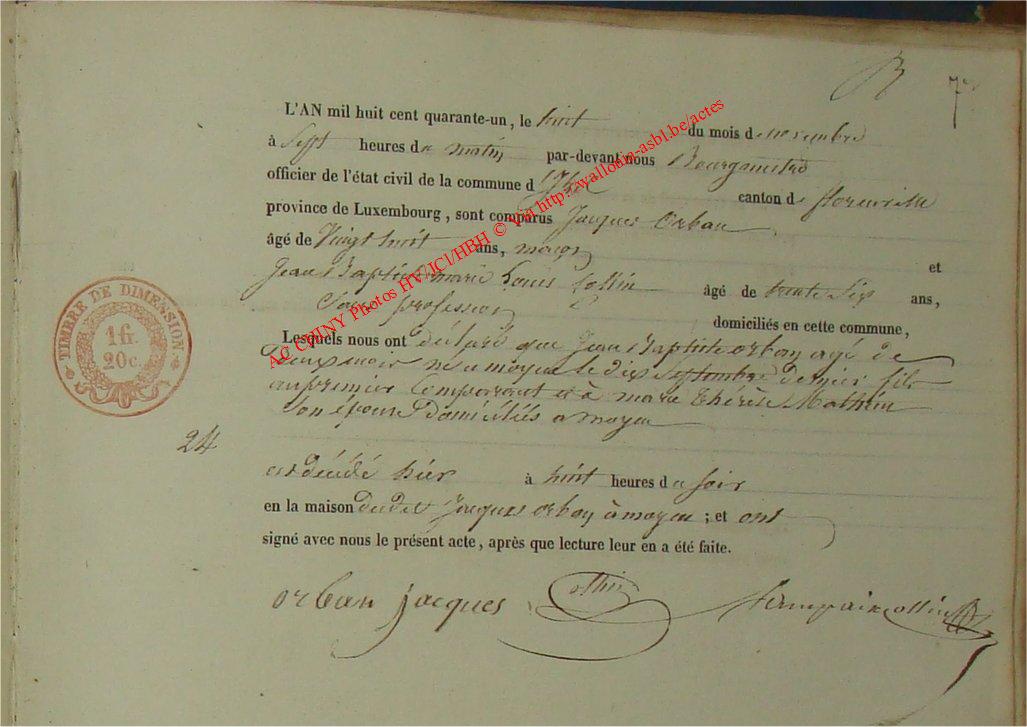 L'AN mil huit cent quarante-un, le huit du mois de novembre
à Sept heures du matin par-devant nous Bourgmestre
officier de l'état civil de la commune d'Izel canton de florenville
province de Luxembourg, sont comparus Jacques Orban
âgé de Vingt huit ans, maçon et
Jean Baptiste marie Louis Collin âgé de trente six ans,
Sans profession domiciliés en cette commune,
Lesquels nous ont déclaré que Jean Baptiste orban agé de
Deux mois né a moyen le dix septembre dernier fils
au premier Comparant et à marie thérèse Mathieu
Son épouse Domiciliés a moyen
24
est décédé hier à huit heures du soir
en la maison dudit Jacques orban à moyen ; et ont
signé avec nous le présent acte, après que lecture leur en a été faite.
orban jacques Collin
TIMBRE DE DIMENSION
1 fr.
20 c.
AC CHINY Photos HV/JCI/HBH © Via http://wallonia-asbl.be/actes